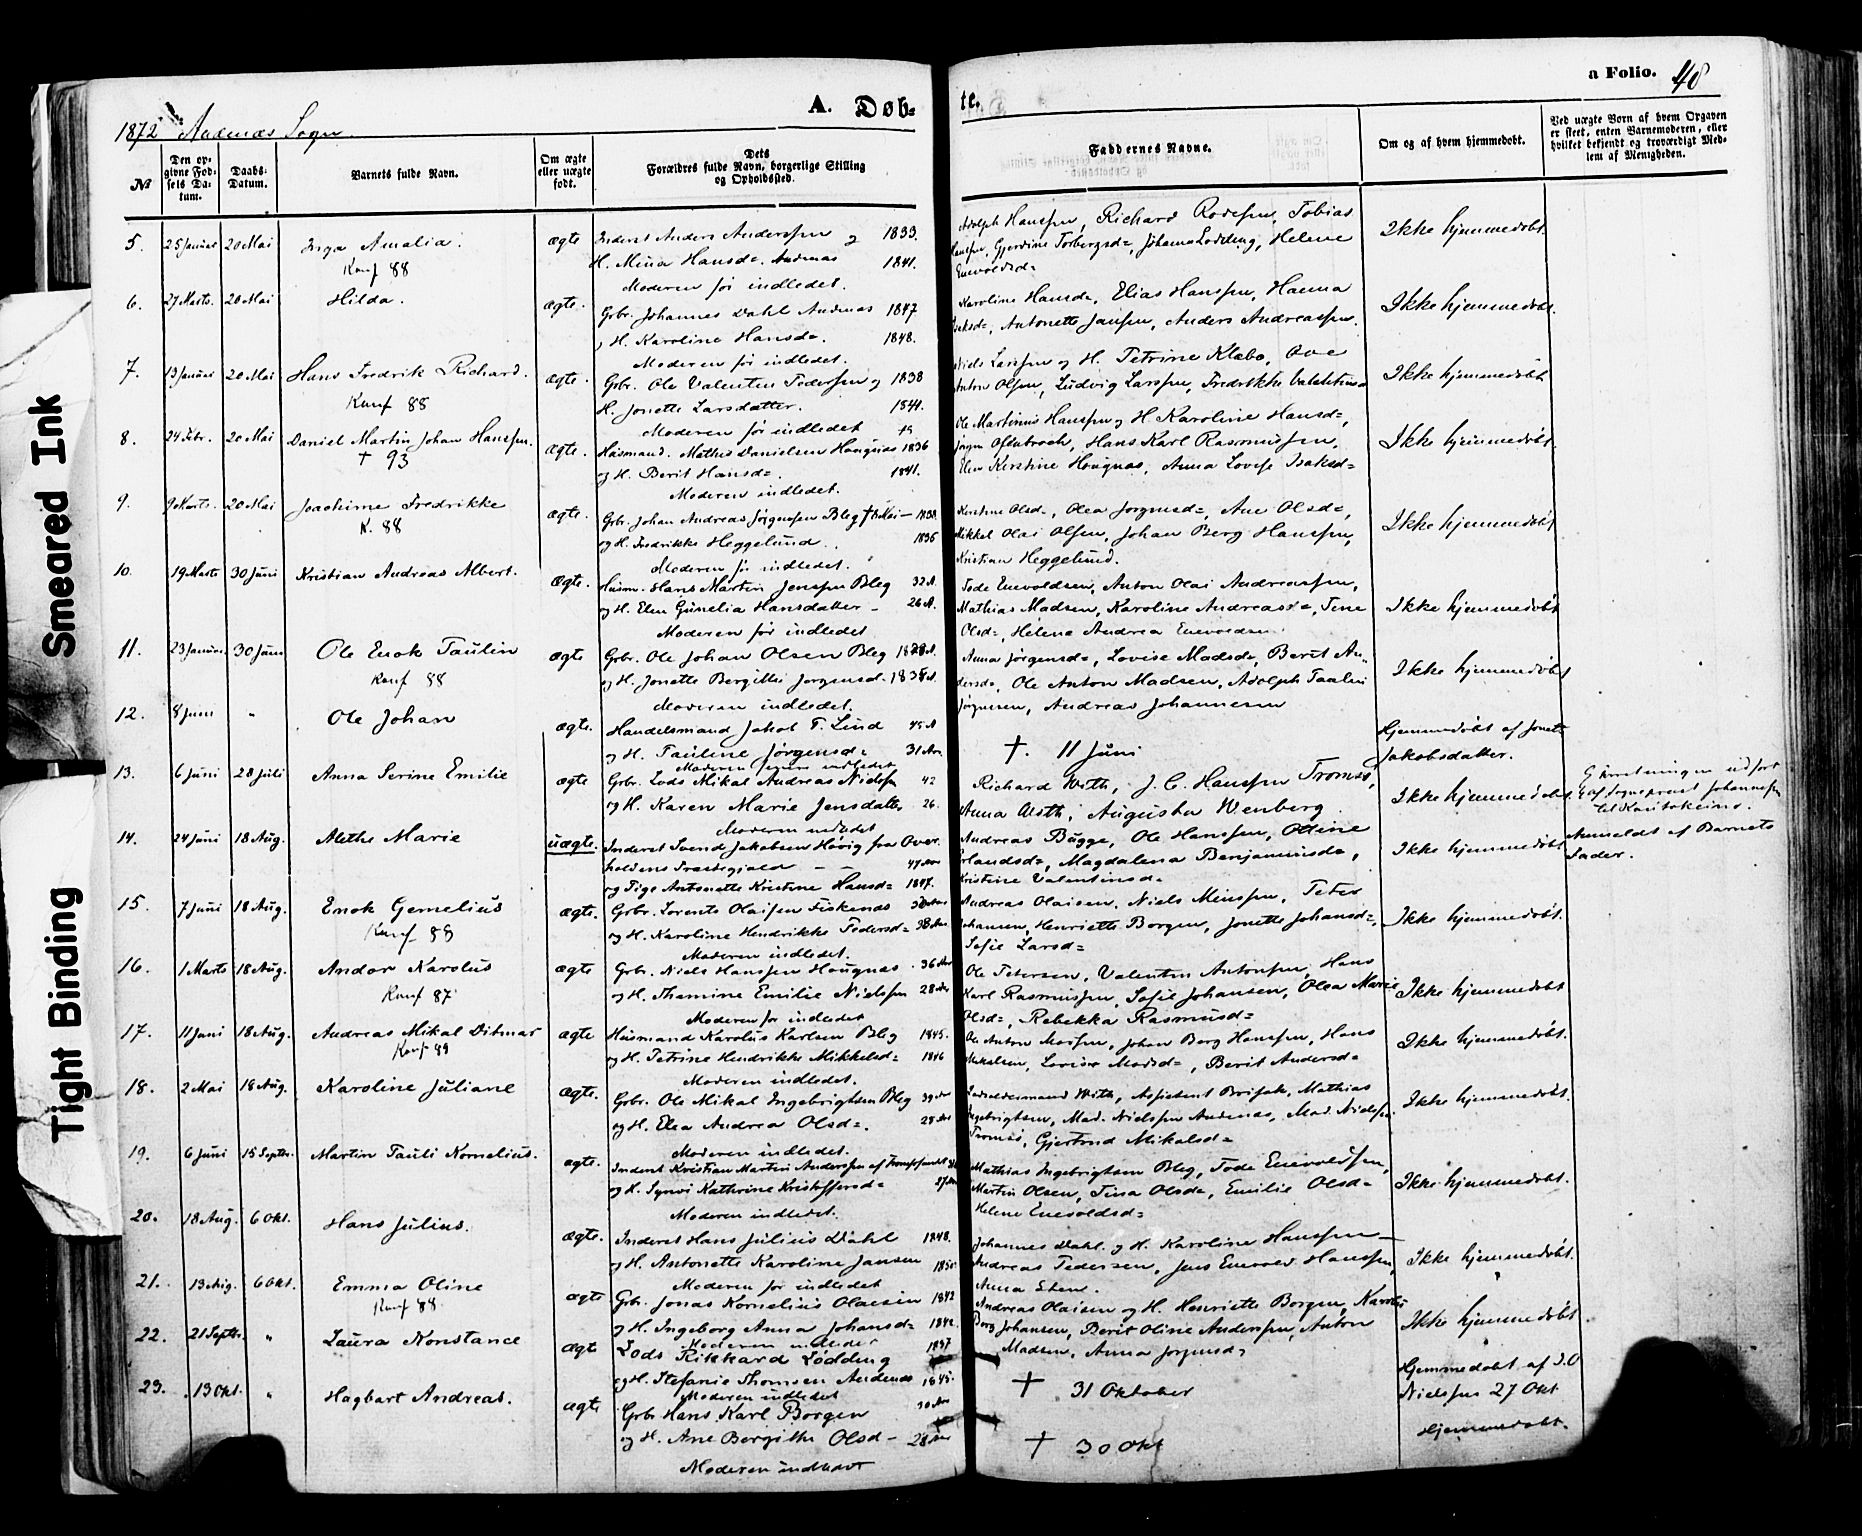 a Folio. 48
A. Døb-
te.
1872 Andenæs Sogn.
№
Den op-
givne Fød-
sels Da-
tum.
Daabs-
Datum.
Barnets fulde Navn.
Om ægte
eller uægte
født.
Dets
Forældres fulde Navn, borgerlige Stilling
og Opholdssted.
Faddernes Navne.
Om og af hvem hjemmedøbt.
Ved uægte Børn af hvem Opgaven
er skeet, enten Barnemoderen, eller
hvilket bekjendt og troværdigt Med-
lem af Menigheden.
Smeared Ink
Tight Binding
5. 25 Januar 20 Mai Inga Amalia. ægte Inderst Anders Anderssen og 1833.
Konf 88 H. Mina Hansd=. Andenæs 1841.
Moderen før indledet.
Adolph Hanssen, Richard Rodesen, Tobias
Hanssen, Gjerdine Torbergsd=, Johanna Lødding, Helene
Enevoldsd=
Ikke hjemmedøbt.
6. 27 Marts 20 Mai Hilda. ægte. Gbr. Johannes Dahl Andenæs 1847
H. Karoline Hansd=. 1848.
Moderen før indledet.
Karoline Hansd=, Elias Hanssen, Hanna
Isaksd=, Antonette Jansen, Anders Andreassen.
Ikke hjemmedøbt.
7. 13 Januar 20 Mai Hans Fredrik Richard. ægte. Gbr. Ole Valentin Pedersen og 1838
Konf 88 H. Jonette Larsdatter. 1841.
Moderen før indledet
Niels Larssen og H. Petrine Klabo, Ove
Anton Olsen, Ludvig Larssen, Fredrikke Valentinsd=
Ikke hjemmedøbt
8. 24 Febr. 20 Mai Daniel Martin Johan Hanssen. ægte. Husmand. Mathis Danielsen Haugnæs 1836
† 93 og H. Berit Hansd=. 1841.
Moderen indledet.
Ole Martinus Hanssen og H. Karoline Hansd=,
Jørgen Oftebroch, Hans Karl Rasmussen,
Elen Kerstine Haugnæs, Anna Lovise Isaksd=
Ikke hjemmedøbt.
9. 9 Marts 20 Mai Joachime Fredrikke ægte. Gbr. Johan Andreas Jørgensen Bleg
K. 88 og H. Fredrikke Heggelund. 1836
Moderen før indledet.
Kerstine Olsd=, Olea Jørgensd=, Ane Olsd=,
Mikkel Olai Olsen, Johan Berg Hanssen,
Kristian Heggelund.
Ikke hjemmedøbt
10. 19 Marts 30 Juni Kristian Andreas Albert. ægte. Husm. Hans Martin Jenssen Bleg 32 A.
og H. Elen Gurelia Hansdatter - 26 A.
Moderen før indledet
Tode Enevoldsen, Anton Olai Andreassen,
Mathias Madsen, Karoline Andreasd=, Tine
Olsd=, Helene Andrea Enevoldsen.
Ikke hjemmedøbt
11. 23 Januar 30 Juni Ole Enok Paulin ægte Gbr. Ole Johan Olsen Bleg
Konf 88 og H. Jonette Bergitte Jørgensd-
Moderen indledet.
Anna Jørgensd=, Lovise Madsd=, Berit An-
dersd=, Ole Anton Madsen, Adolph Paulin
Jørgensen, Andreas Johannesen
Ikke hjemmedøbt
12. 8 Juni " Ole Johan ægte. Handelsmand Jakob P. Lind 45 A
og H. Pauline Jørgensd= 31 Aar
Moderen indledet
†. 11 Juni
Hjemmedøbt af Jonette
Jakobsdatter.
13. 6 Juni 28 Juli Anna Serine Emilie ægte Gbr. Lods Mikal Andreas Nielsen 42
og H. Karen Marie Jensdatter 26.
Moderen indledet
Richard With, J. C. Hanssen Tromsø,
Anna With, Augusta Wenberg
Ikke hjemmedøbt
Forretningen udført
af Sognepræst Johannessen
til Kautokeino.
14. 24 Juni 18 Aug. Alethe Marie uægte. Inderst Svend Jakobsen Høvig fra Over-
holdens Præstegjeld - 47 Aar
og Pige Antonette Kristine Hansd= 1847.
Andreas Bugge, Ole Hanssen, Oline
Erlandsd=, Magdalena Benjaminsd=,
Kristine Valentinsd=
Ikke hjemmedøbt
Anmeldt af Barnets
Fader.
15. 7 Juni 18 Aug. Enok Gemelius ægte. Gbr. Lorents Olaisen Fiskenæs
Konf 88 og H. Karoline Hendrikke Pedersd=
Moderen indledet.
Andreas Olaisen, Niels Minssen, Peter
Johansen, Henriette Borgen, Jonette Johansd=,
Sofie Larsd=
Ikke hjemmedøbt.
16. 1 Marts 18 Aug. Andor Karolus ægte Gbr. Niels Hanssen Haugnæs. 36 Aar
Konf 87 og H. Thamine Emilie Nielssen 28 Aar
Moderen før indledet
Ole Petersen, Valentin Antonsen, Hans
Karl Rasmussen, Sofie Johansen, Olea Marie
Olsd=, Rebekka Rasmusd=
Ikke hjemmedøbt
17. 11 Juni 18 Aug. Andreas Mikal Ditmar ægte Husmand Karolus Karlsen Bleg 1845.
Konf 89 og H. Petrine Hendrikke Mikkelsd= 1846
Moderen indledet.
Ole Anton Madsen, Johan Berg Hanssen, Hans
Mikalsen, Lovise Madsd=, Berit Andersd=
Ikke hjemmedøbt.
18. 2 Mai 18 Aug. Karoline Juliane ægte. Gbr. Ole Mikal Ingebrigtsen Bleg 39 Aar
og H. Elea Andrea Olsd=. 28 Aar
Moderen indledet.
With, Assistent Brisak, Mathias
Ingebrigtsen, Mad. Nielssen Andenæs, Mad. Nielssen
Tromsø, Gjertrud Mikalsd=
Ikke hjemmedøbt.
19. 6 Juni 15 Septr. Martin Pauli Kornelius. ægte. Inderst Kristian Martin Anderssen af
og H. Synvi Kathrine Kristoffersd= 27 Aar
Moderen indledet.
Mathias Ingebrigtsen Bleg, Tode Enevoldsen,
Martin Olsen, Tina Olsd=, Emilie Olsd=
Helene Enevoldsd=
Ikke hjemmedøbt.
20. 18 Aug. 6 Okt. Hans Julius. ægte. Inderst Hans Julius Dahl 1848.
og H. Antonette Karoline Jansen 1850
Moderen før indledet
Johannes Dahl. og H. Karoline Hanssen
Andreas Pedersen, Jens Enevold Hanssen,
Anna Steen.
Ikke hjemmedøbt.
21. 13 Aug. 6 Okt. Emma Oline ægte Gbr. Jonas Kornelius Olaisen 1842
Konf 88. og H. Ingeborg Anna Johansd= 1842.
Moderen indledet
Andreas Olaisen og H. Henriette Borgen, Karolus
Borg Johansen, Berit Oline Anderssen, Anton
Madsen, Anna Jørgensd=
Ikke hjemmedøbt
22. 21 Septr. " Laura Konstance ægte Lods Rikkard Lødding 1837
og H. Stefanie Thomsen Andenæs 1845.
Moderen indledet
† 31 Oktober
Hjemmedøbt af J. O
Nielssen 27 Okt
23. 13 Okt. " Hagbart Andreas. ægte Gbr Hans Karl Borgen 30 Aar
og H. Ane Bergitte Olsd - 28 Aar
Moderen indledet
† 30 Okt
Hjemmedøbt.